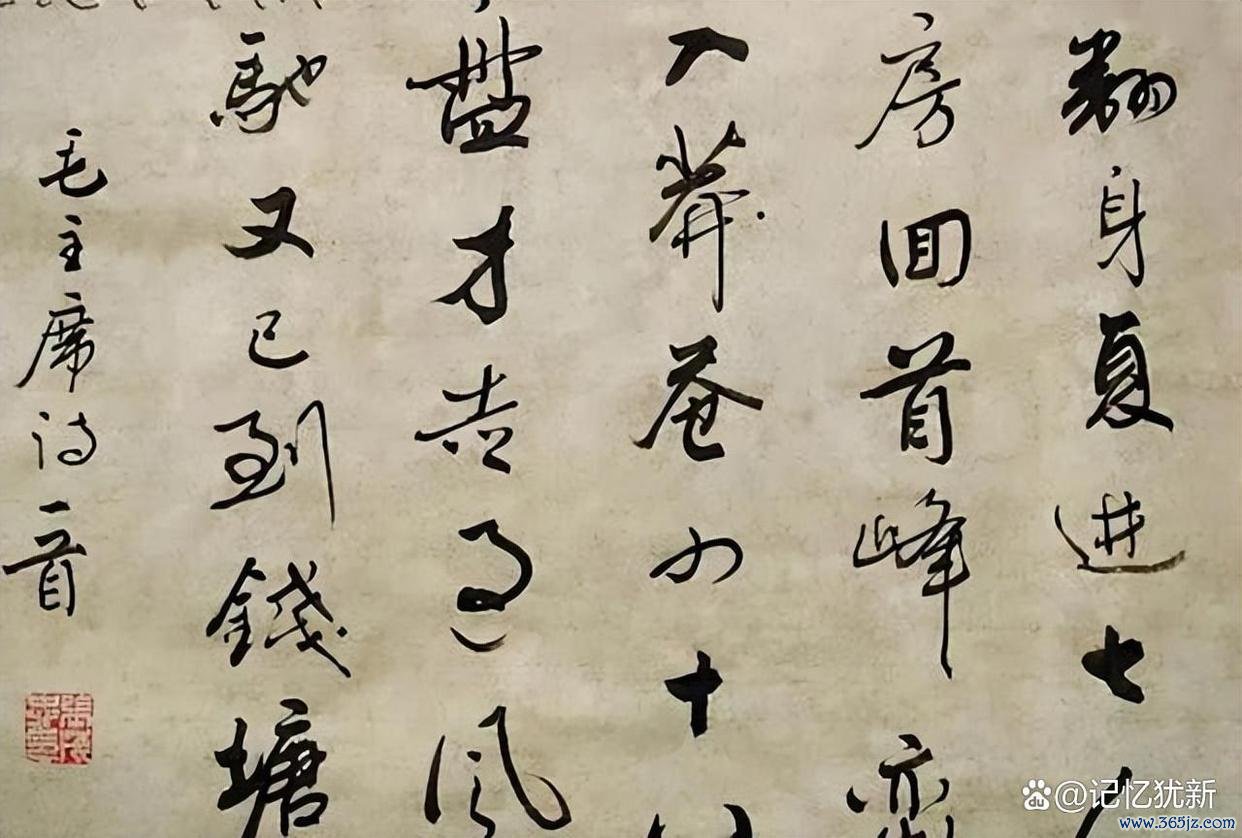 翻身复進七人
房回首峰峦
入莽苍四十八
盤才走过風
馳又已到錢塘
毛主席诗一首
@记忆犹新
www.365jz.com